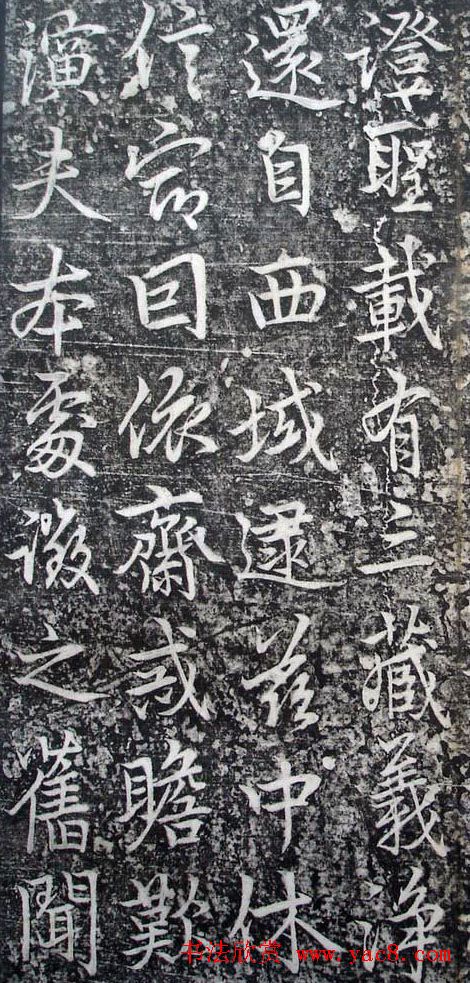 證聖載有三藏義淨
還自西域逮茲中休
信宿因依齋戒瞻歎
演夫本處徵之舊聞
书法欣赏 www.yac8.com